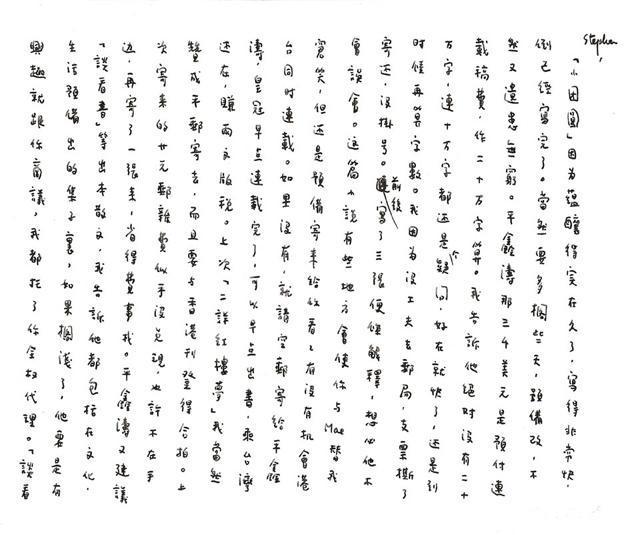 Stephen,
「小団圓」因为蘊釀得实在久了，寫得非常快，
倒已經寫完了。當然要多擱些天，預備改，不
然又遺患無窮。平鑫濤那三千美元是預付連
載稿費，作二十万字算。我告訴他絕对沒有二十
万字，連十万字都还是个疑问，好在就快了，还是到
时候再算字數。我因为沒工夫去郵局，支票撕了
寄还，沒掛号。前後寫了三張便條解釋，想必他不
會誤會。这篇小說有些地方會使你与Mae替我
窘笑，但还是預備寄來給你看看有沒有机會港
台同时連載。如果沒有，就請空郵寄給平鑫
濤，皇冠早点連載完了，可以早点出書，趁台灣
还在，賺兩文版税。上次「二詳紅樓夢」我當然
贊成平郵寄去，而且要与香港刊登得合拍。上
次寄来的廿元郵雜費似乎沒兌現，也許不在手
边，再寄了一張来，省得費事找。平鑫濤又建議
「談看書」等出本散文，我告訴他都包括在文化・
生活預備出的集子裏，如果擱淺了，他要是有
興趣就跟你商議，我都托了你全权代理。「談看